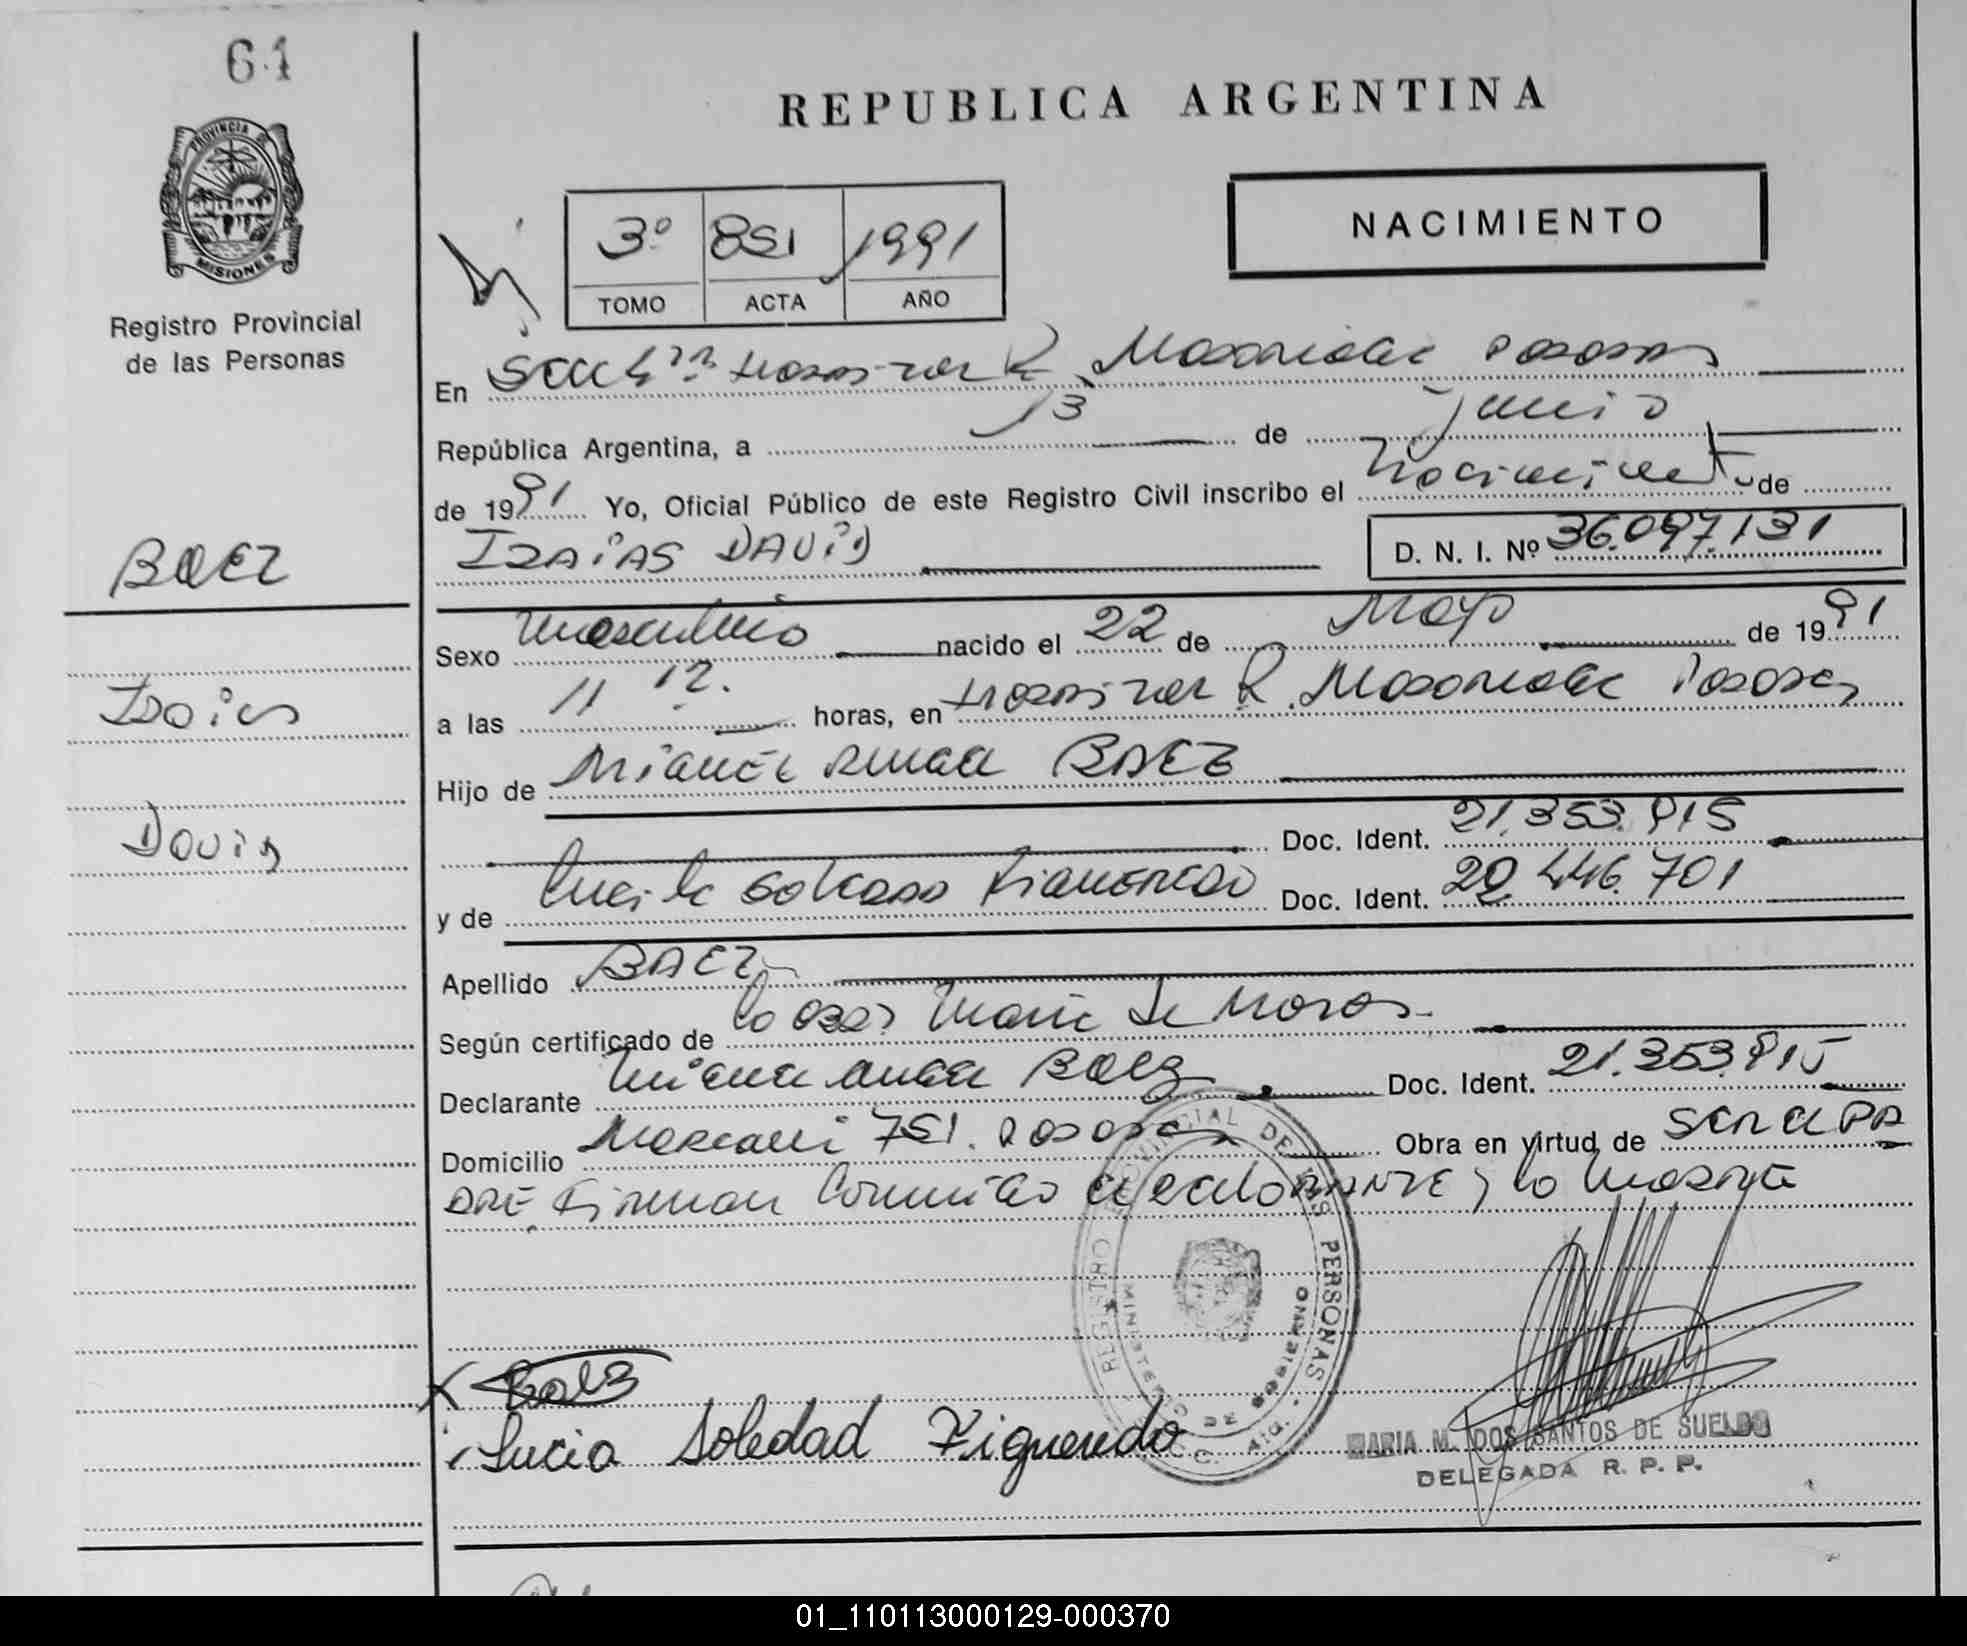 64
PROVINCIA DE
MISIONES
Registro Provincial
de las Personas
REPUBLICA ARGENTINA
NACIMIENTO
3º 851 1991
TOMO ACTA AÑO
En R. Madariaga Posadas
República Argentina, a 13 de junio
de 1991 Yo, Oficial Público de este Registro Civil inscribo el nacimiento de
IZAIAS DAVID
D. N. I. Nº 36.097.131
BAEZ
Sexo masculino nacido el 22 de Mayo de 1991
Isaias
a las 11 12. horas, en R. Madariaga Posadas
Hijo de MIGUEL ANGEL BAEZ
David
Doc. Ident. 21.353.915
y de Soledad FIGUEREDO Doc. Ident. 20.446.701
Apellido BAEZ
Según certificado de
Declarante Miguel Angel Baez Doc. Ident. 21.353.915
Domicilio 751. Posadas Obra en virtud de ser el PA
DRE. Firman Conmigo el declarante y la madre
REGISTRO PROVINCIAL DE LAS PERSONAS
MINISTERIO DE GOBIERNO
Baez
Lucia Soledad Figueredo
MARIA M. DOS SANTOS DE SUELDO
DELEGADA R. P. P.
01_110113000129-000370